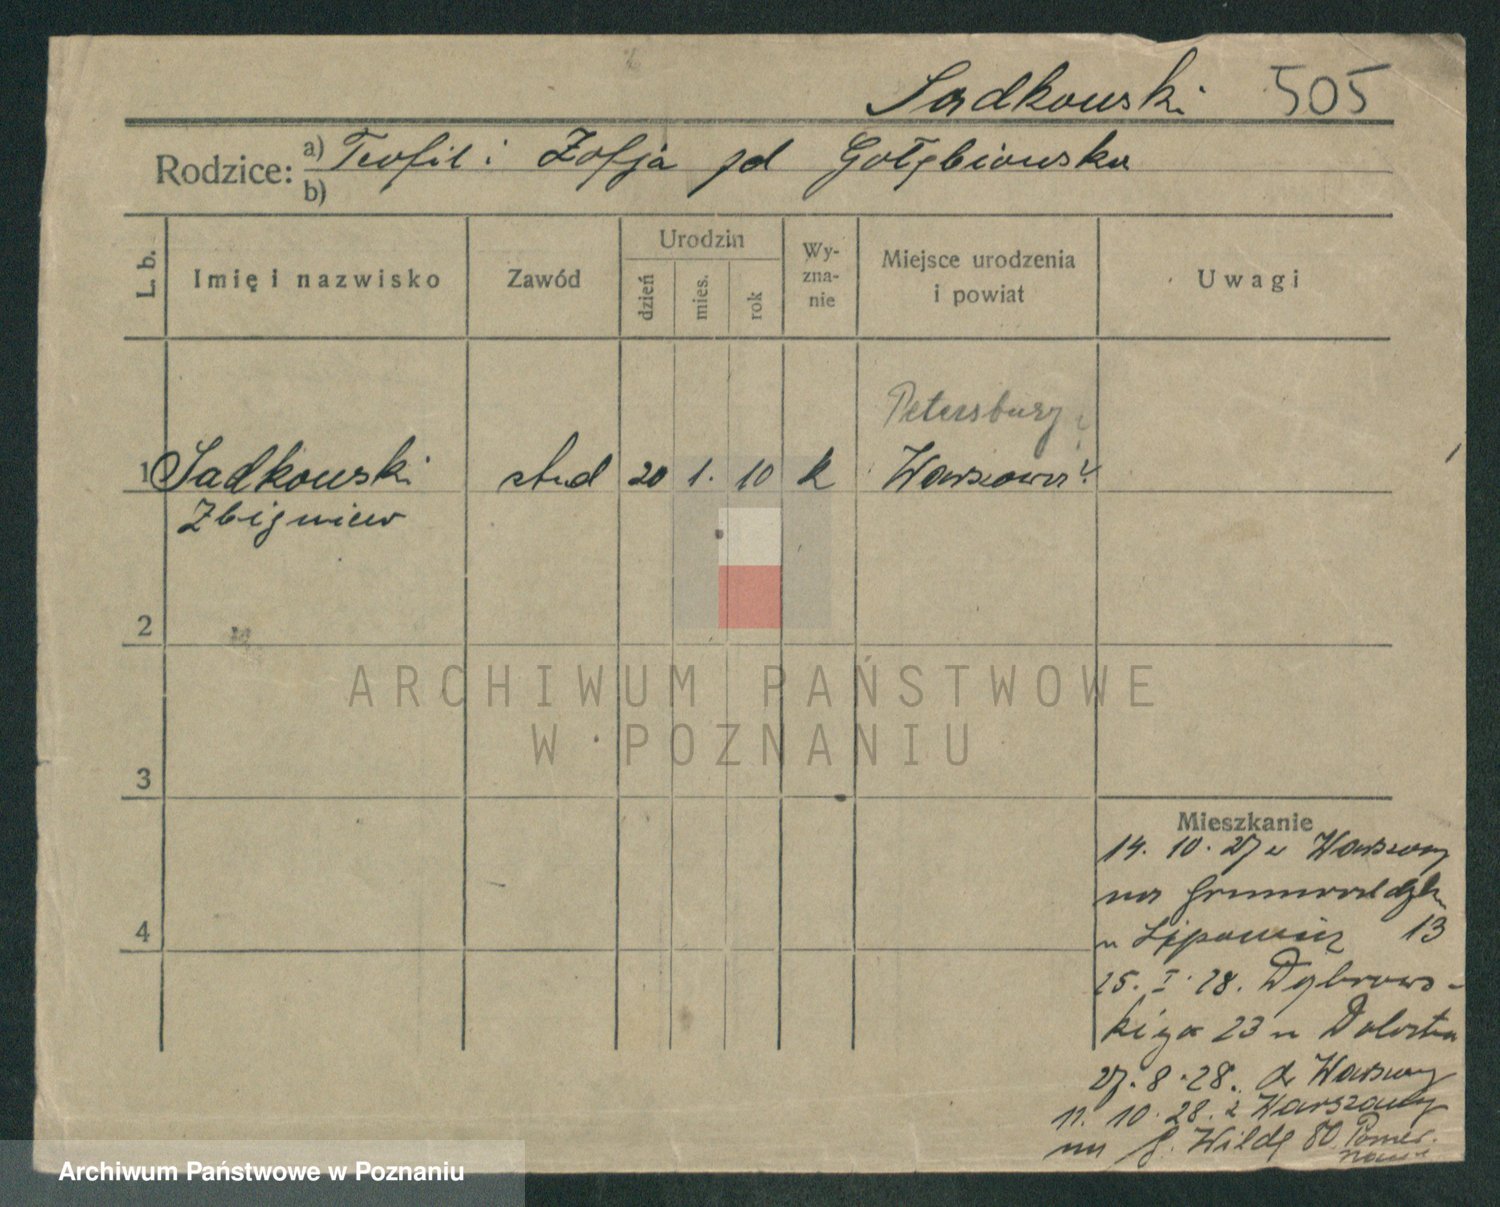 Sadkowski 505
Rodzice: a) Teofil i Zofja zd Gołębiowska
b)
L. b.
Imię i nazwisko
Zawód
Urodzin
dzień
mies.
rok
Wy-
zna-
nie
Miejsce urodzenia
i powiat
Uwagi
Petersburg?
1 Sadkowski stud 20 1. 10 k Warszawa
Zbigniew
2
ARCHIWUM PAŃSTWOWE
W POZNANIU
3
4
Mieszkanie
14. 10. 27 z Warszawy
na Grunwaldzk
u 13
25. I. 28. Dąbrows-
kiego 23 u
27. 8. 28. do Warszawy
11. 10. 28. z Warszawy
na G. Wildę 80
Archiwum Państwowe w Poznaniu